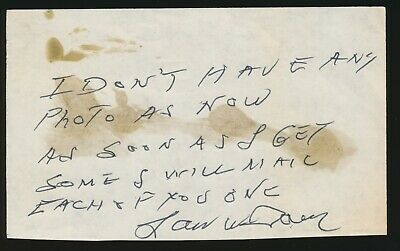 I DON'T HAVE ANY
PHOTO AS NOW
AS SOON AS I GET
SOME I WILL MAIL
EACH OF YOU ONE